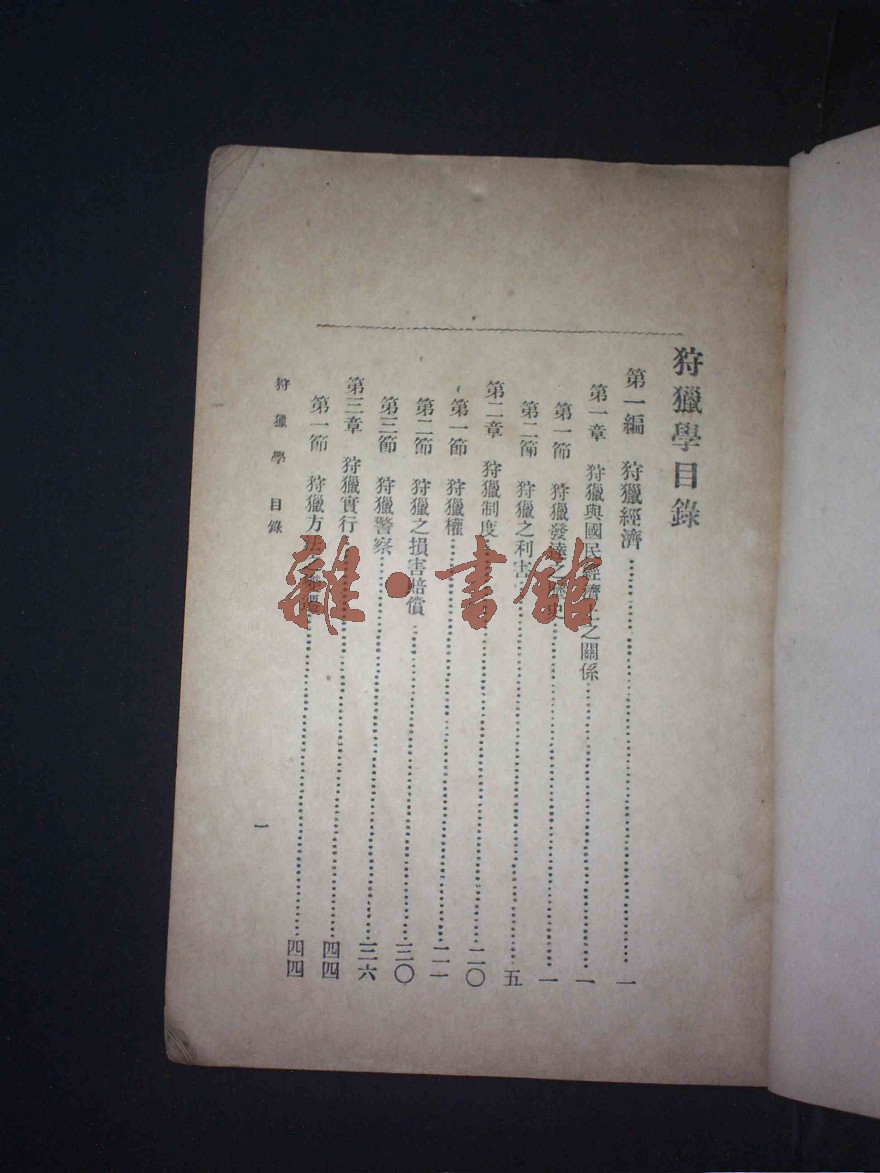 狩獵學目錄
第一編 狩獵經濟……一
第一章 狩獵與國民經濟上之關係……一
第一節 狩獵發達之歷史……一
第二節 狩獵之利害……五
第二章 狩獵制度……二〇
第一節 狩獵權……二一
第二節 狩獵之損害賠償……三〇
第三節 狩獵警察……三六
第三章 狩獵實行……四四
第一節 狩獵方法之……四四
狩獵學 目錄
一
雜·書館